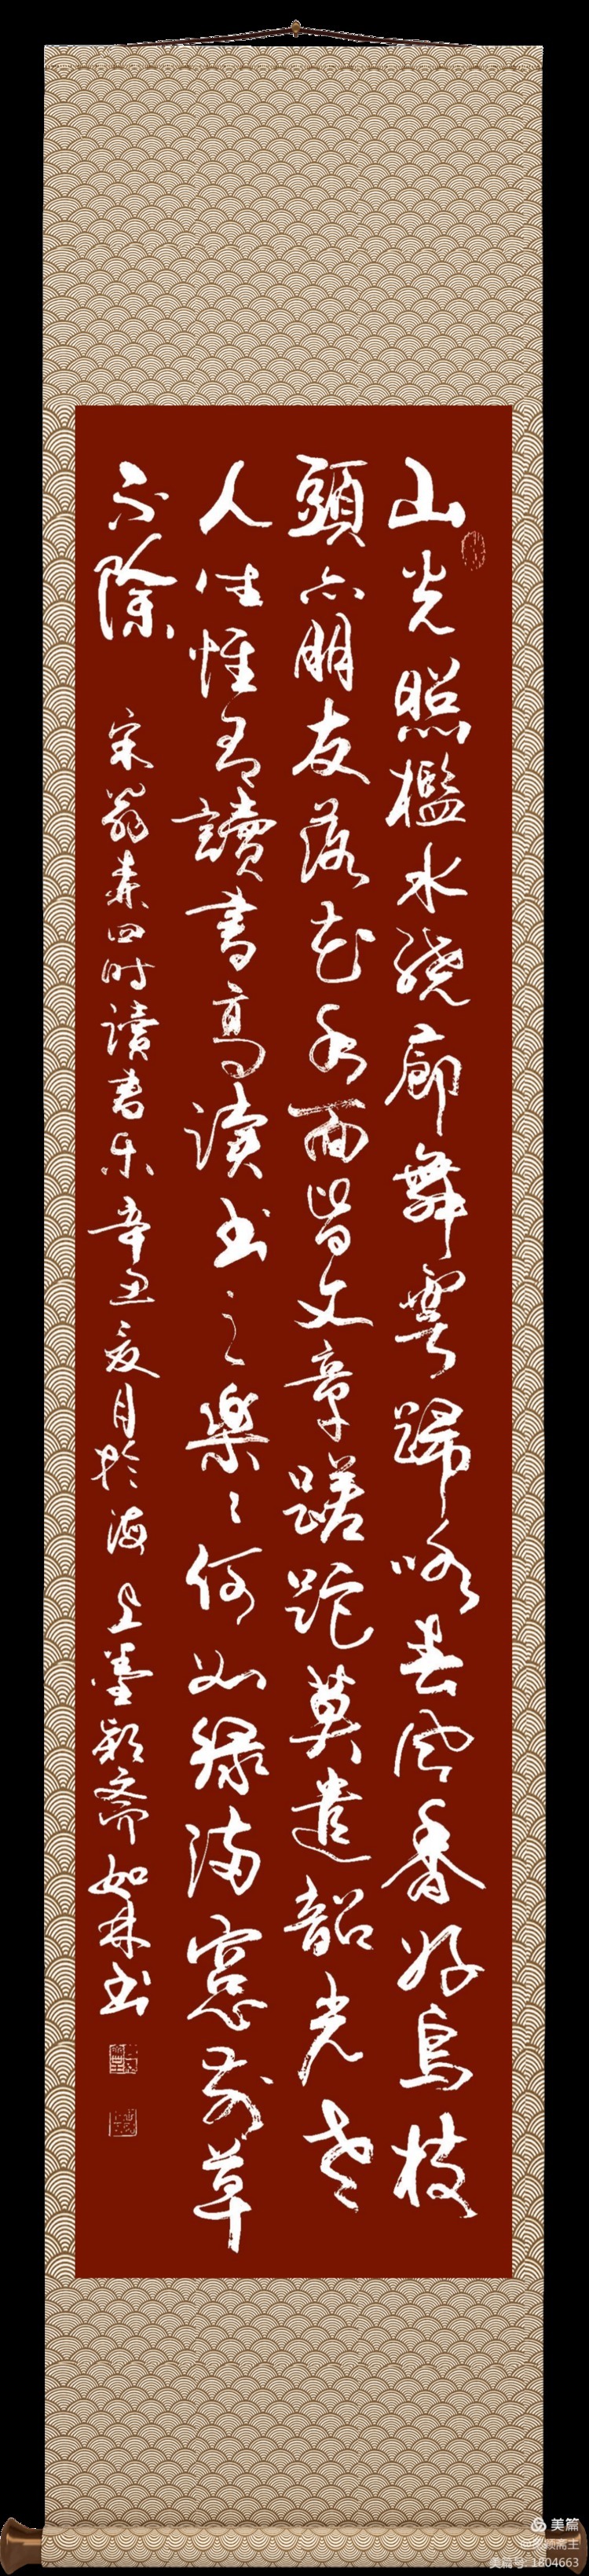 山光照檻水繞廊舞雩歸咏春風香好鳥枝
頭亦朋友落花水面皆文章蹉跎莫遣韶光老
人生惟有讀書高读书之樂〻何如绿满窓前草
不除
宋翁森四时读书乐辛丑夏月於海上墨颖斋如林书
美篇
颖斋主
美篇号: 1804663